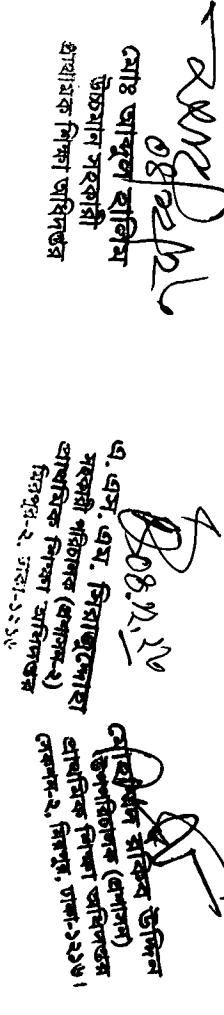 মোঃ আব্দুল হালিম
উচ্চমান সহকারী
প্রাথমিক শিক্ষা অধিদপ্তর
০৪.১২.২০
এ. এস. এম. সিরাজুদ্দোহা
সহকারী পরিচালক (প্রশাসন-২)
প্রাথমিক শিক্ষা অধিদপ্তর
মিরপুর-২, ঢাকা-১২১৬
উপপরিচালক (প্রশাসন)
প্রাথমিক শিক্ষা অধিদপ্তর
সেকশন-২, মিরপুর, ঢাকা-১২১৬।